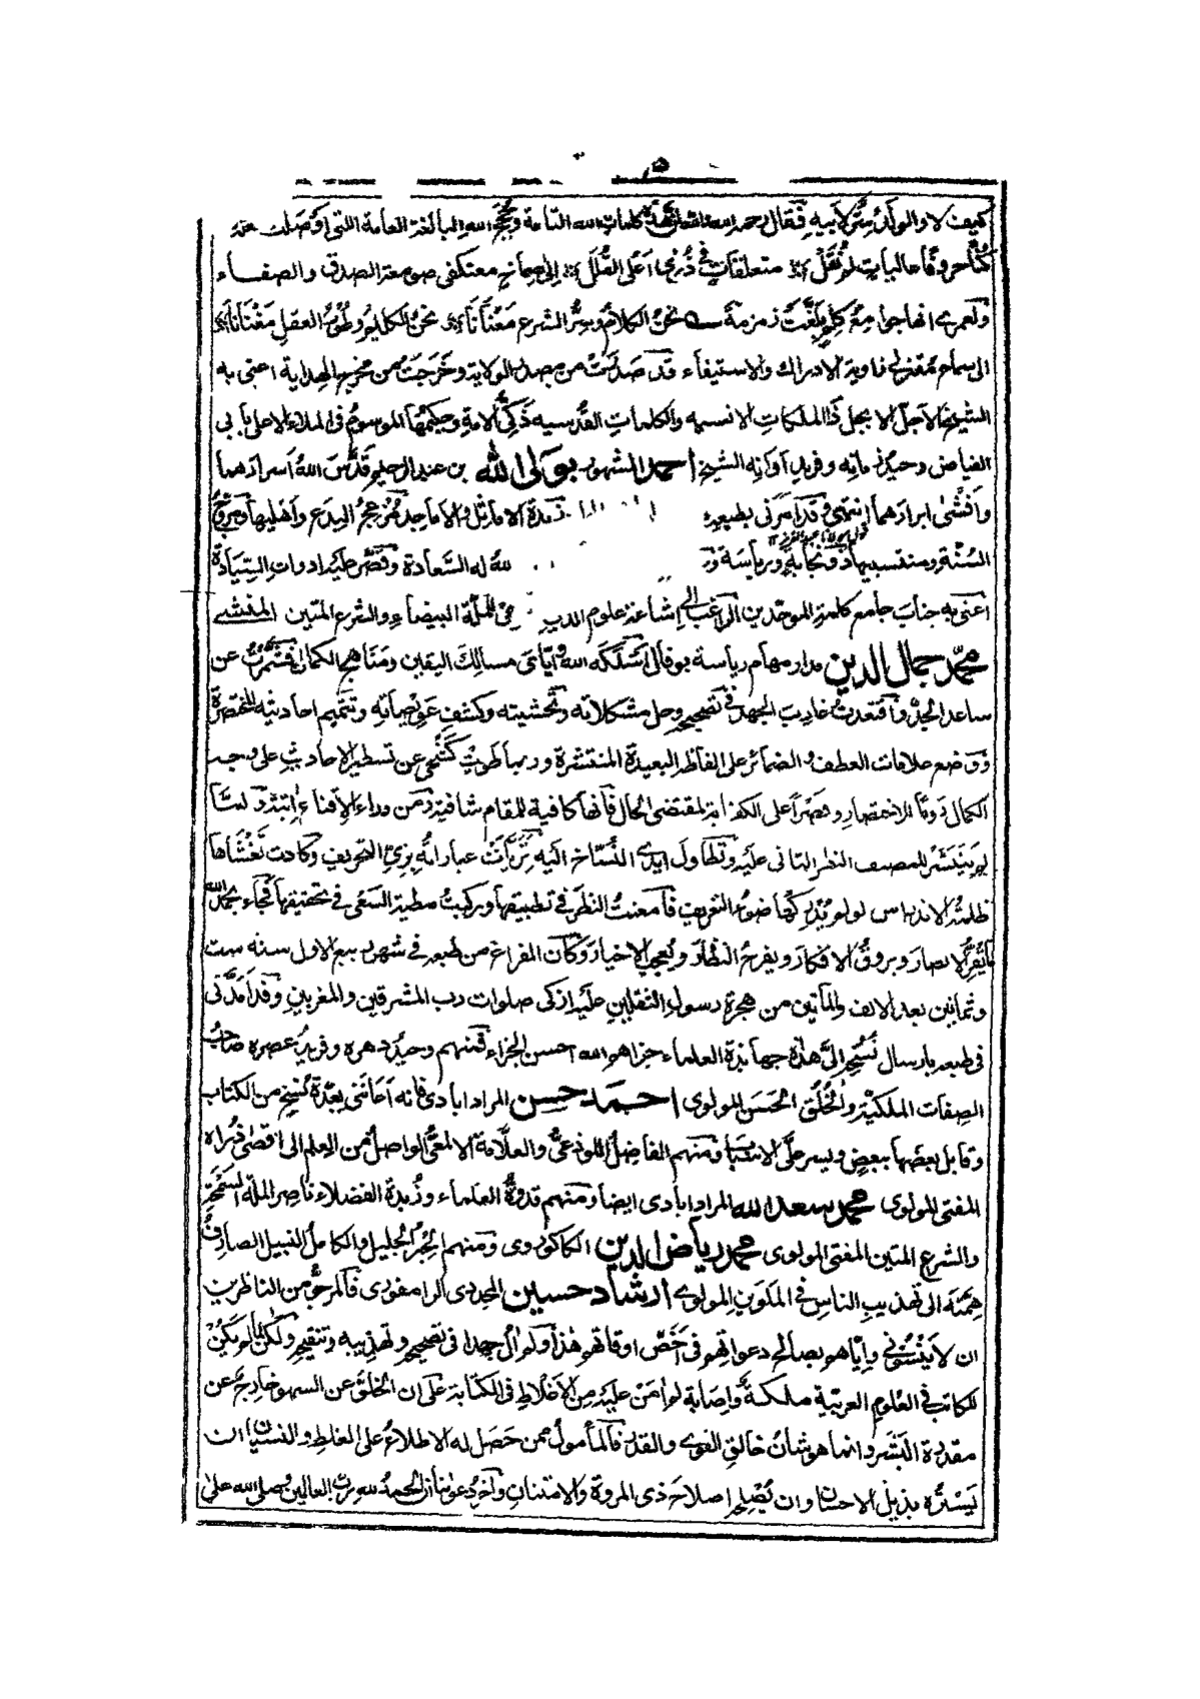 كيف لا والولد سر لأبيه فقال رحمه الله كلمات الله التامة وحجج الله البالغة العامة اللتي
كنا حروفا عاليات لم نقل متعلقات في ذرى أعلى القلل إلى صماخ معتكفى صومعة الصدق والصفاء
ولعمرى انها جوامع كلم بلغت زمزمة نحن الكلام وسر الشرع معنانا نحن الكليم وطور العقل مغنانا
الى سماع زاوية الادراك والاستيفاء قد صدرت من مصدر الولاية وخرجت من مخرج الهداية اعنى به
الشيخ الاجل الابجل ذا الملكات الانسيه والكلمات القدسيه ذكى الامة وحكيمها الموسوم في الملاء الاعلى بابى
الفياض وحيد زمانه وفريد آوانه الشيخ احمد المشهور بولى الله بن عبد الرحيم قدس الله اسرارهما
وافشى ابرارهما وقد امرنى بطبعه زبدة الاماثل والاماجد البدع واهليها ومروج
السنة ومنتسبيها ذو نجابة ورياسة الله له السعادة وقصر عليه ادوات السيادة
اعنى به جناب جامع كلمة الموحدين الراغب الى اشاعة علوم الدين الملة البيضاء والشرع المتين المنشى
محمد جمال الدين مدار مهام رياسة بوفال اسلكه الله واياى مسالك اليقين ومناهج الكمال فشمرت عن
ساعد الجد واقتعدت غارب الجهد في تصحيحه وحل مشكلاته وتحشيته وكشف عويصاته وتتميم احاديثه المختصرة
ووضع علامات العطف والضمائر على الفاظه البعيدة المنتشرة وربما طويت كشحى عن تسطير الاحاديث على وجه
الكمال روما للاختصار وقصرا على الكفاية لمقتضى الحال فانها كافية للمقام شافية من وراء
لم يتيسر للمصنف النظر الثانى عليه وتطاول ايدى النساخ اليه تزيأت عباراته بزى التحريف وكادت تغشاها
ظلمة الاندراس لو لم يدركها ضوء التعريف فامعنت النظر في تطبيقها وركبت مطية السعى في تحقيقها فجاء بحمد الله
ما يقر الابصار ويروق الافكار ويفرح النظار ويعجب الاخيار وكان الفراغ من طبعه في شهر ربيع الاول سنه ست
وثمانين بعد الالف والمأتين من هجرة رسول الثقلين عليه ازكى صلوات رب المشرقين والمغربين وقد امدنى
في طبعه بارسال نسخه الى هذه جهابذة العلماء جزاهم الله احسن الجزاء فمنهم وحيد دهره وفريد عصره صاحب
الصفات الملكية والخلق الحسن المولوى احمد حسن المراد ابادى فانه اعاننى بعدة نسخ من الكتاب
وقابل بعضها ببعض ويسر على ومنهم الفاضل اللوذعى والعلامة الالمعى الواصل من العلم الى اقصى ذراه
المفتى المولوى محمد سعد الله المراد ابادى ايضا ومنهم قدوة العلماء وزبدة الفضلاء ناصر الملة السمحة
والشرع المتين المفتى المولوى محمد رياض الدين الكاكوروى ومنهم الحبر الجليل والكامل النبيل الصارف
همته الى تهذيب الناس في الملوين المولوى ارشاد حسين المجددى الرامفورى فالمرجو من الناظرين
ان لا ينسونى واياهم بصالح دعواتهم في اخص اوقاتهم هذا ولم آل جهدا في تصحيحه وتهذيبه وتنقيحه ولكن لما لم يكن
للكاتب في العلوم العربية ملكة واصابة لم امن عليه من الاغلاط في الكتابة على ان الخلق عن السهو خارج عن
مقدرة البشر وانما هو شان خالق القوى والقدر فالمأمول ممن حصل له الاطلاع على الغلط والنسيان ان
يستره بذيل الاحسان وان يصلحه اصلاح ذى المروة والامتنان وآخر دعوانا ان الحمد لله رب العالمين وصلى الله على